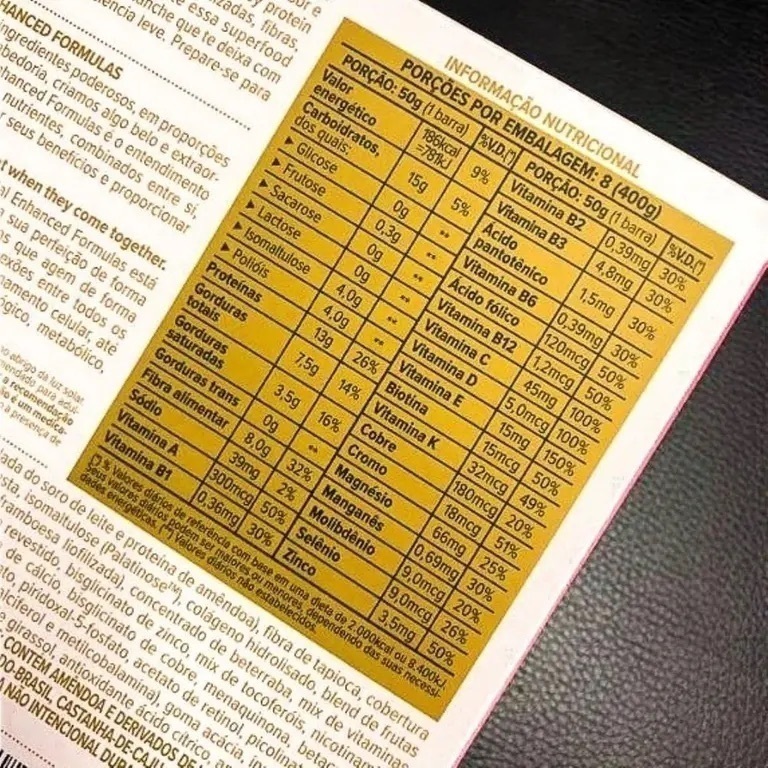 protein
izadas, fibras,
e essa superfood
anche que te deixa com
lência leve. Prepare-se para
HANCED FORMULAS
ingredientes poderosos, em proporções
abedoria, criamos algo belo e extraor-
hanced Formulas é o entendimento
nutrientes, combinados entre si,
r seus benefícios e proporcionar
t when they come together.
al Enhanced Formulas está
sua perfeição de forma
s que agem de forma
exões entre todos os
amento celular, até
ógico, metabólico,
ao abrigo da luz solar
a recomendação
o é um medica-
a presença de
INFORMAÇÃO NUTRICIONAL
PORÇÕES POR EMBALAGEM: 8 (400g)
PORÇÃO: 50g (1 barra) %V.D.(*)
Valor energético 186kcal =781kJ 9%
Carboidratos, dos quais: 15g 5%
▶ Glicose 0g **
▶ Frutose 0,3g **
▶ Sacarose 0g **
▶ Lactose 0g **
▶ Isomaltulose 4,0g **
▶ Polióis 4,0g **
Proteínas 13g 26%
Gorduras totais 7,5g 14%
Gorduras saturadas 3,5g 16%
Gorduras trans 0g **
Fibra alimentar 8,0g 32%
Sódio 39mg 2%
Vitamina A 300mcg 50%
Vitamina B1 0,36mg 30%
PORÇÃO: 50g (1 barra) %V.D.(*)
Vitamina B2 0,39mg 30%
Vitamina B3 4,8mg 30%
Ácido pantotênico 1,5mg 30%
Vitamina B6 0,39mg 30%
Ácido fólico 120mcg 50%
Vitamina B12 1,2mcg 50%
Vitamina C 45mg 100%
Vitamina D 5,0mcg 100%
Vitamina E 15mg 150%
Biotina 15mcg 50%
Vitamina K 32mcg 49%
Cobre 180mcg 20%
Cromo 18mcg 51%
Magnésio 66mg 25%
Manganês 0,69mg 30%
Molibdênio 9,0mcg 20%
Selênio 9,0mcg 26%
Zinco 3,5mg 50%
(*) % Valores diários de referência com base em uma dieta de 2.000kcal ou 8.400kJ.
Seus valores diários podem ser maiores ou menores, dependendo das suas necessi-
dades energéticas. (**) Valores diários não estabelecidos.
lada do soro de leite e proteína de amêndoa), fibra de tapioca, cobertura
sta, isomaltulose (Palatinose™), colágeno hidrolisado, blend de frutas
framboesa liofilizada), concentrado de beterraba, mix de vitaminas
revestido, bisglicinato de zinco, mix de tocoferóis, nicotinam
de cálcio, bisglicinato de cobre, menaquinona, betac
to, piridoxal-5-fosfato, acetato de retinol, picolinat
lciferol e metilcobalamina), goma acácia, in
girassol, antioxidante ácido cítrico, a
: CONTÉM AMÊNDOA E DERIVADOS DE
DO-BRASIL, CASTANHA-DE-CAJU
NÃO INTENCIONAL DURA